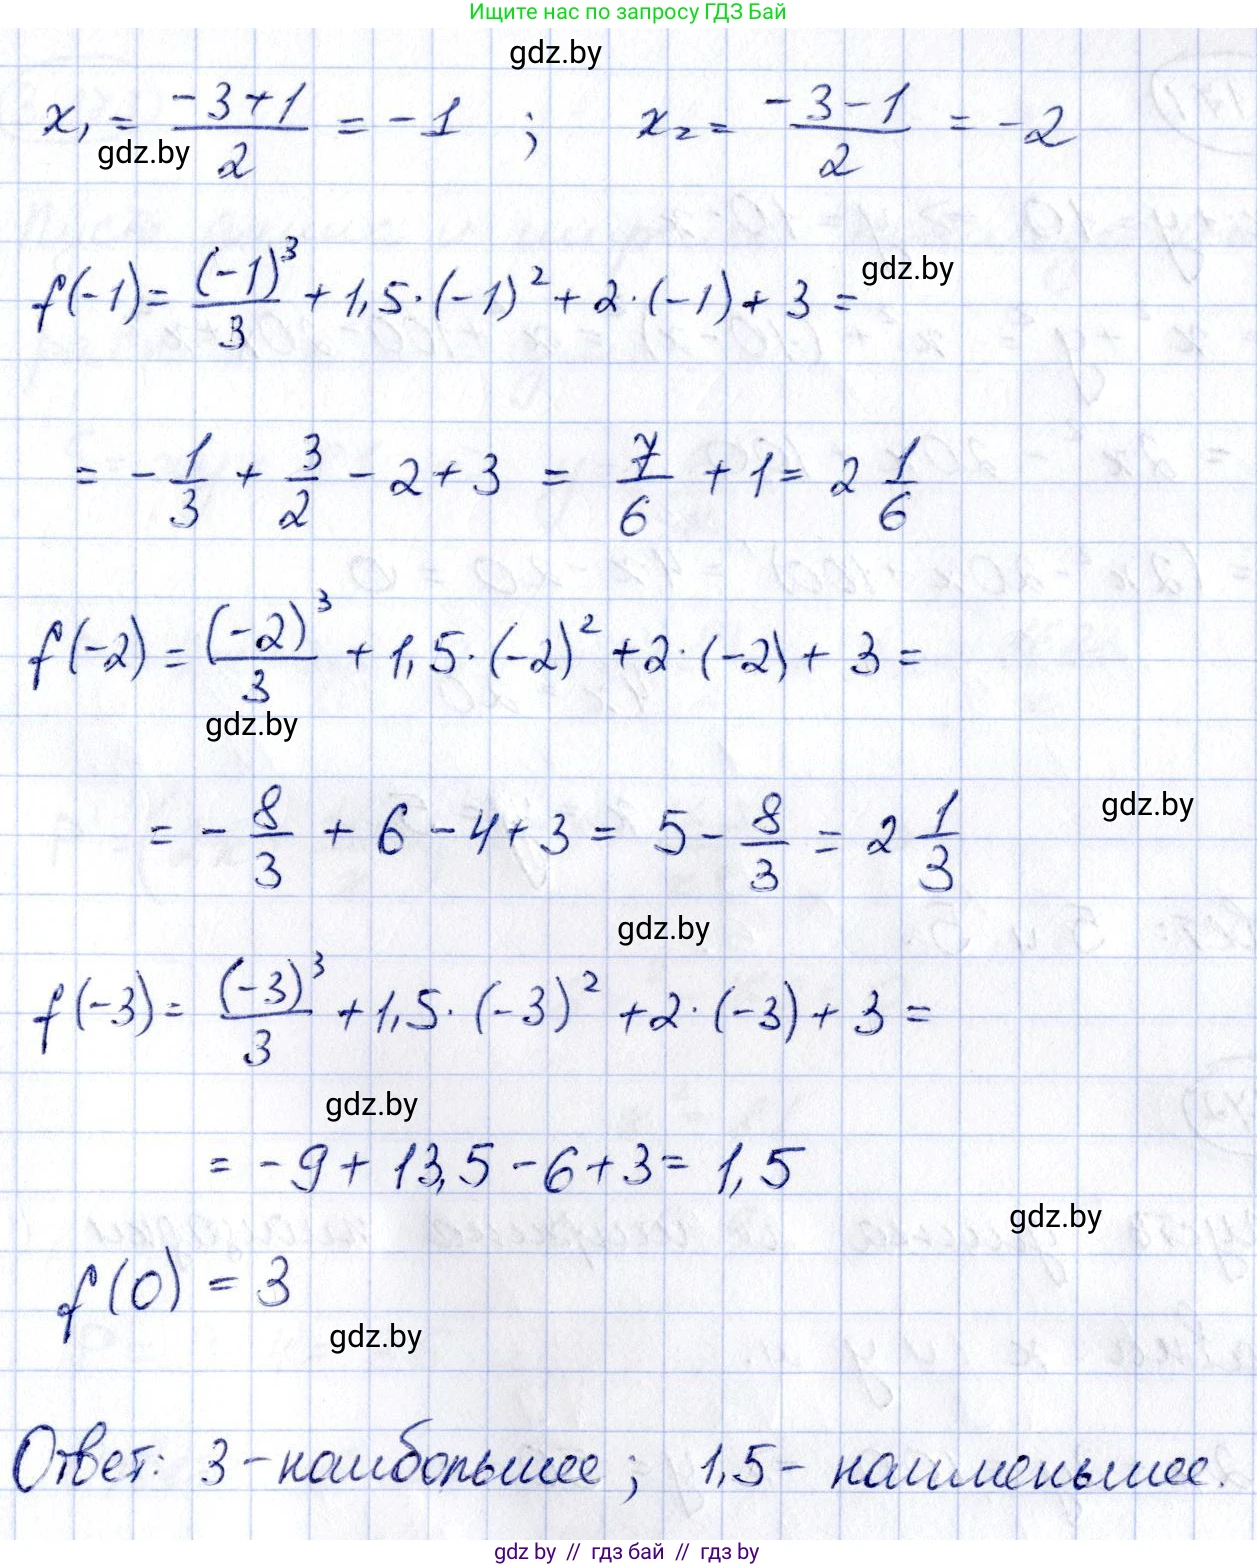 Ищите нас по запросу ГДЗ Бай
gdz.by
x₁ = (-3+1)/2 = -1 ; x₂ = (-3-1)/2 = -2
gdz.by
gdz.by
f(-1) = (-1)³/3 + 1,5·(-1)² + 2·(-1) + 3 =
= -1/3 + 3/2 - 2 + 3 = 7/6 + 1 = 2 1/6
f(-2) = (-2)³/3 + 1,5·(-2)² + 2·(-2) + 3 =
gdz.by
gdz.by
= -8/3 + 6 - 4 + 3 = 5 - 8/3 = 2 1/3
gdz.by
f(-3) = (-3)³/3 + 1,5·(-3)² + 2·(-3) + 3 =
gdz.by
= -9 + 13,5 - 6 + 3 = 1,5
gdz.by
f(0) = 3
gdz.by
Ответ: 3 - наибольшее ; 1,5 - наименьшее.
gdz by // гдз бай // гдз by